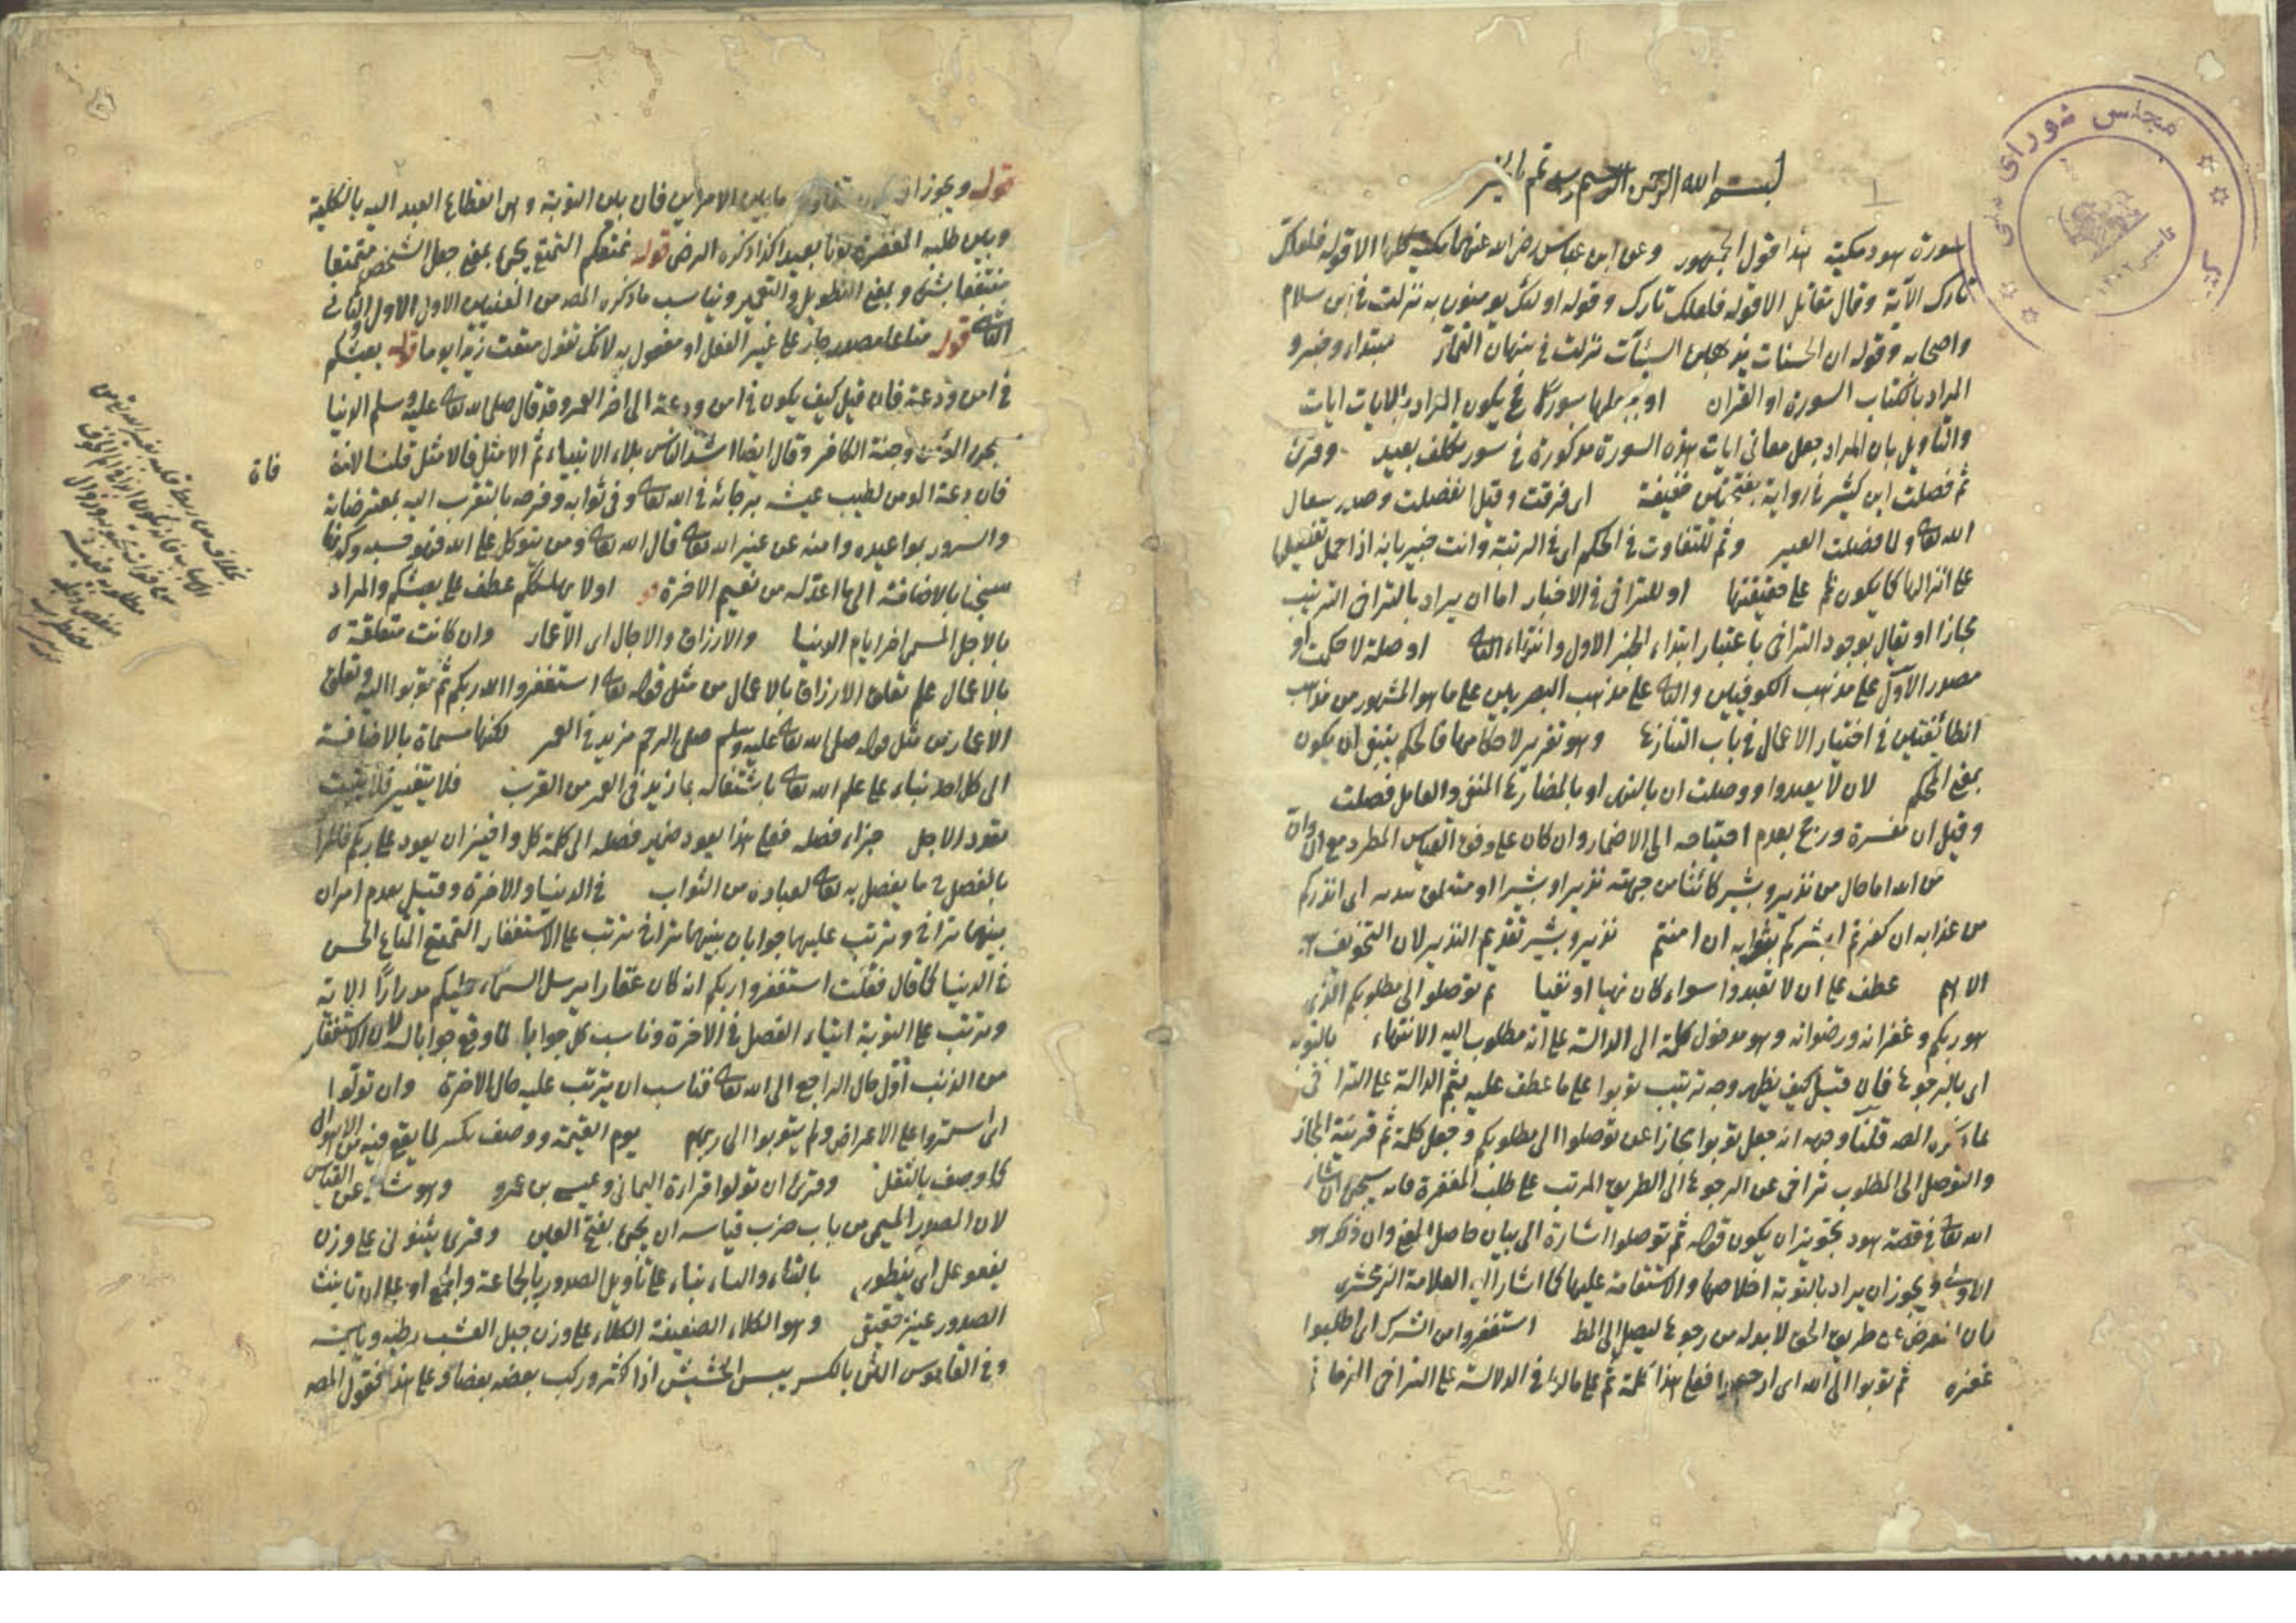 مجلس شورای ملی
بسم الله الرحمن الرحيم رب تمم بالخير
سورة هود مكية هذا قول الجمهور وعن ابن عباس رض الله عنهما مكية كلها الا قوله فلعلك
تارك الآية وقال مقاتل الا قوله فلعلك تارك وقوله اولئك يومنون به نزلت في ابن سلام
واصحابه وقوله ان الحسنات يذهبن السيئات نزلت في نبهان التمار مبتداء وخبر و
المراد بالكتاب السورة او القرآن او جملها سورا فح يكون المراد بالايات ايات
والتاويل بان المراد جعل معاني ايات هذه السورة مذكورة في سور تكلف بعيد وقرئ
ثم فصلت ابن كثير في رواية بفتحتين خفيفة اى فرقت وقيل انفصلت وصدر سعال
الله تعا ولما فصلت العير وثم للتفاوت في الحكم اى في الرتبة وانت خبير بانه اذا حمل تفصيلها
على انزالها كا يكون ثم على حقيقتها او للتراخي في الاخبار اما ان يراد بالتراخي الترتيب
مجازا او يقال بوجود التراخي باعتبار ابتداء الجزء الاول وانتهاء الثاني او صلة لاحكمت او
مصدر الاول على مذهب الكوفيين والثاني على مذهب البصريين على ما هو المشهور من مذهب
الطائفتين في اختيار الاعمال في باب التنازع وهو تقرير لاحكامها فالحكيم ينبغي ان يكون
بمعنى المحكم لان لا يعبدوا ووصلت ان بالنهى او بالمضارع المنفى والعامل فصلت
وقيل ان مفسرة ورجح بعدم احتياجه الى الاضمار وان كان على وفق القياس المطرد مع ان وان
من الله اما حال من نذير وبشير كائنا من جهته نذيرا وبشيرا او متعلق بنذير اى انذركم
من عذابه ان كفرتم وابشركم بثوابه ان امنتم نذير وبشير تقديم النذير لان التخويف هو
الاهم عطف على ان لا تعبدوا سواء كان نهيا او نفيا ثم توصلوا الى مطلوبكم الذى
هو ربكم وغفرانه ورضوانه وهو مدخول كلمة الى الدالة على انه مطلوب اليه الانتهاء بالتوبة
اى بالرجوع فان قيل كيف يظهر وجه ترتيب توبوا على ما عطف عليه بثم الدالة على التراخي
على ما ذكره المص قلنا وجهه انه جعل توبوا مجازا عن توصلوا الى مطلوبكم وجعل كلمة ثم قرينة المجاز
والتوصل الى المطلوب تراخي عن الرجوع الى الطريق المرتب على طلب المغفرة فانه سيجئ ان شاء
الله تعا في قصة هود بتجويز ان يكون قوله ثم توصلوا اشارة الى بيان حاصل المعنى وان ذكر هو
الاولى ويجوز ان يراد بالتوبة اخلاصها والاستقامة عليها كما اشار اليه العلامة الزمخشرى
فان المعرض عن طريق الحق لا بد له من رجوع ليصل الى المط استغفروا من الشرك اى اطلبوا
غفره ثم توبوا الى الله اى ارجعوا فعلى هذا كلمة ثم على مالها في الدلالة على التراخي الزماني
قوله ويجوز ان يكون ثم لتفاوت ما بين الامرين فان بين التوبة وهى انقطاع العبد اليه بالكلية
وبين طلبه المغفرة بونا بعيدا كذا ذكره الرضى قوله يمتعكم التمتع يجئ بمعنى جعل الشخص متمتعا
منتفعا بشئ وبمعنى التطويل والتعمير ويناسب ما ذكره المص من المعنيين الاول الاول والثاني
الثاني قوله متاعا مصدر جار على غير الفعل او مفعول به لانك تقول متعت زيدا يوما قوله يعيشكم
في امن ودعة فان قيل كيف يكون في امن ودعة الى اخر العمر وقد قال صلى الله تعا عليه وسلم الدنيا
سجن المؤمن وجنة الكافر وقال ايضا اشد الناس بلاء الانبياء ثم الامثل فالامثل قلنا لا منافاة
فان دعة المومن لطيب عيشه برجائه في الله تعا وفي ثوابه وفرحه بالتقرب اليه بمفترضاته
والسرور بمواعيده وامنه عن غير الله تعا قال الله تعا ومن يتوكل على الله فهو حسبه وكونها
سجنا بالاضافة الى ما اعد له من نعيم الاخرة او لا يهلككم عطف على يعيشكم والمراد
بالاجل المسمى اخر ايام الدنيا والارزاق والاجال اى الاعمار وان كانت متعلقة
بالاعمال علم تعلق الارزاق بالاعمال من مثل قوله تعا استغفروا ربكم ثم توبوا اليه وتعلق
الاعمار من مثل قوله صلى الله تعا عليه وسلم صلة الرحم مزيد في العمر لكنها مسماة بالاضافة
الى كل احد بناء على علم الله تعا باشتغاله بما يزيد في العمر من القرب فلا يتغير فلا يثبت
تعدد الاجل جزاء فضله فعلى هذا يعود ضمير فضله الى كلمة كل واختير ان يعود على ربكم فالمراد
بالفضل ما يفضل به تعا لعباده من الثواب في الدنيا والاخرة وقيل بعدم امران
بينهما تراخ ورتب عليهما جوابان بينهما تراخ ترتب على الاستغفار التمتع المتاع الحسن
في الدنيا كما قال فقلت استغفروا ربكم انه كان غفارا يرسل السماء عليكم مدرارا الاية
وترتب على التوبة ايتاء الفضل في الاخرة وناسب كل جواب لما وقع جوابا له لان الاستغفار
من الذنب اول حال الراجع الى الله تعا فناسب ان يترتب عليه حال الاخرة وان تولوا
اى استمروا على الاعراض ولم يتوبوا الى ربهم يوم القيمة ووصف بكبير لما يقع فيه من الاهوال
كما وصف بالثقل وقرئ ان تولوا قراءة اليماني وعيسى بن عمرو وهو شاذ عن القياس
لان المصدر الميمى من باب ضرب قياسه ان يجئ بفتح العين وقرئ يثنوني على وزن
يفعوعل اى ينطوى بالتاء والياء بناء على تاويل الصدور بالجماعة والجمع او على ان تانيث
الصدور غير حقيقى وهو الكلاء الضعيفة الكلاء على وزن جبل العشب رطبه ويابسه
وفي القاموس الثن بالكسر يبيس الحشيش اذا كثر وركب بعضه بعضا وعلى هذا فقول المص